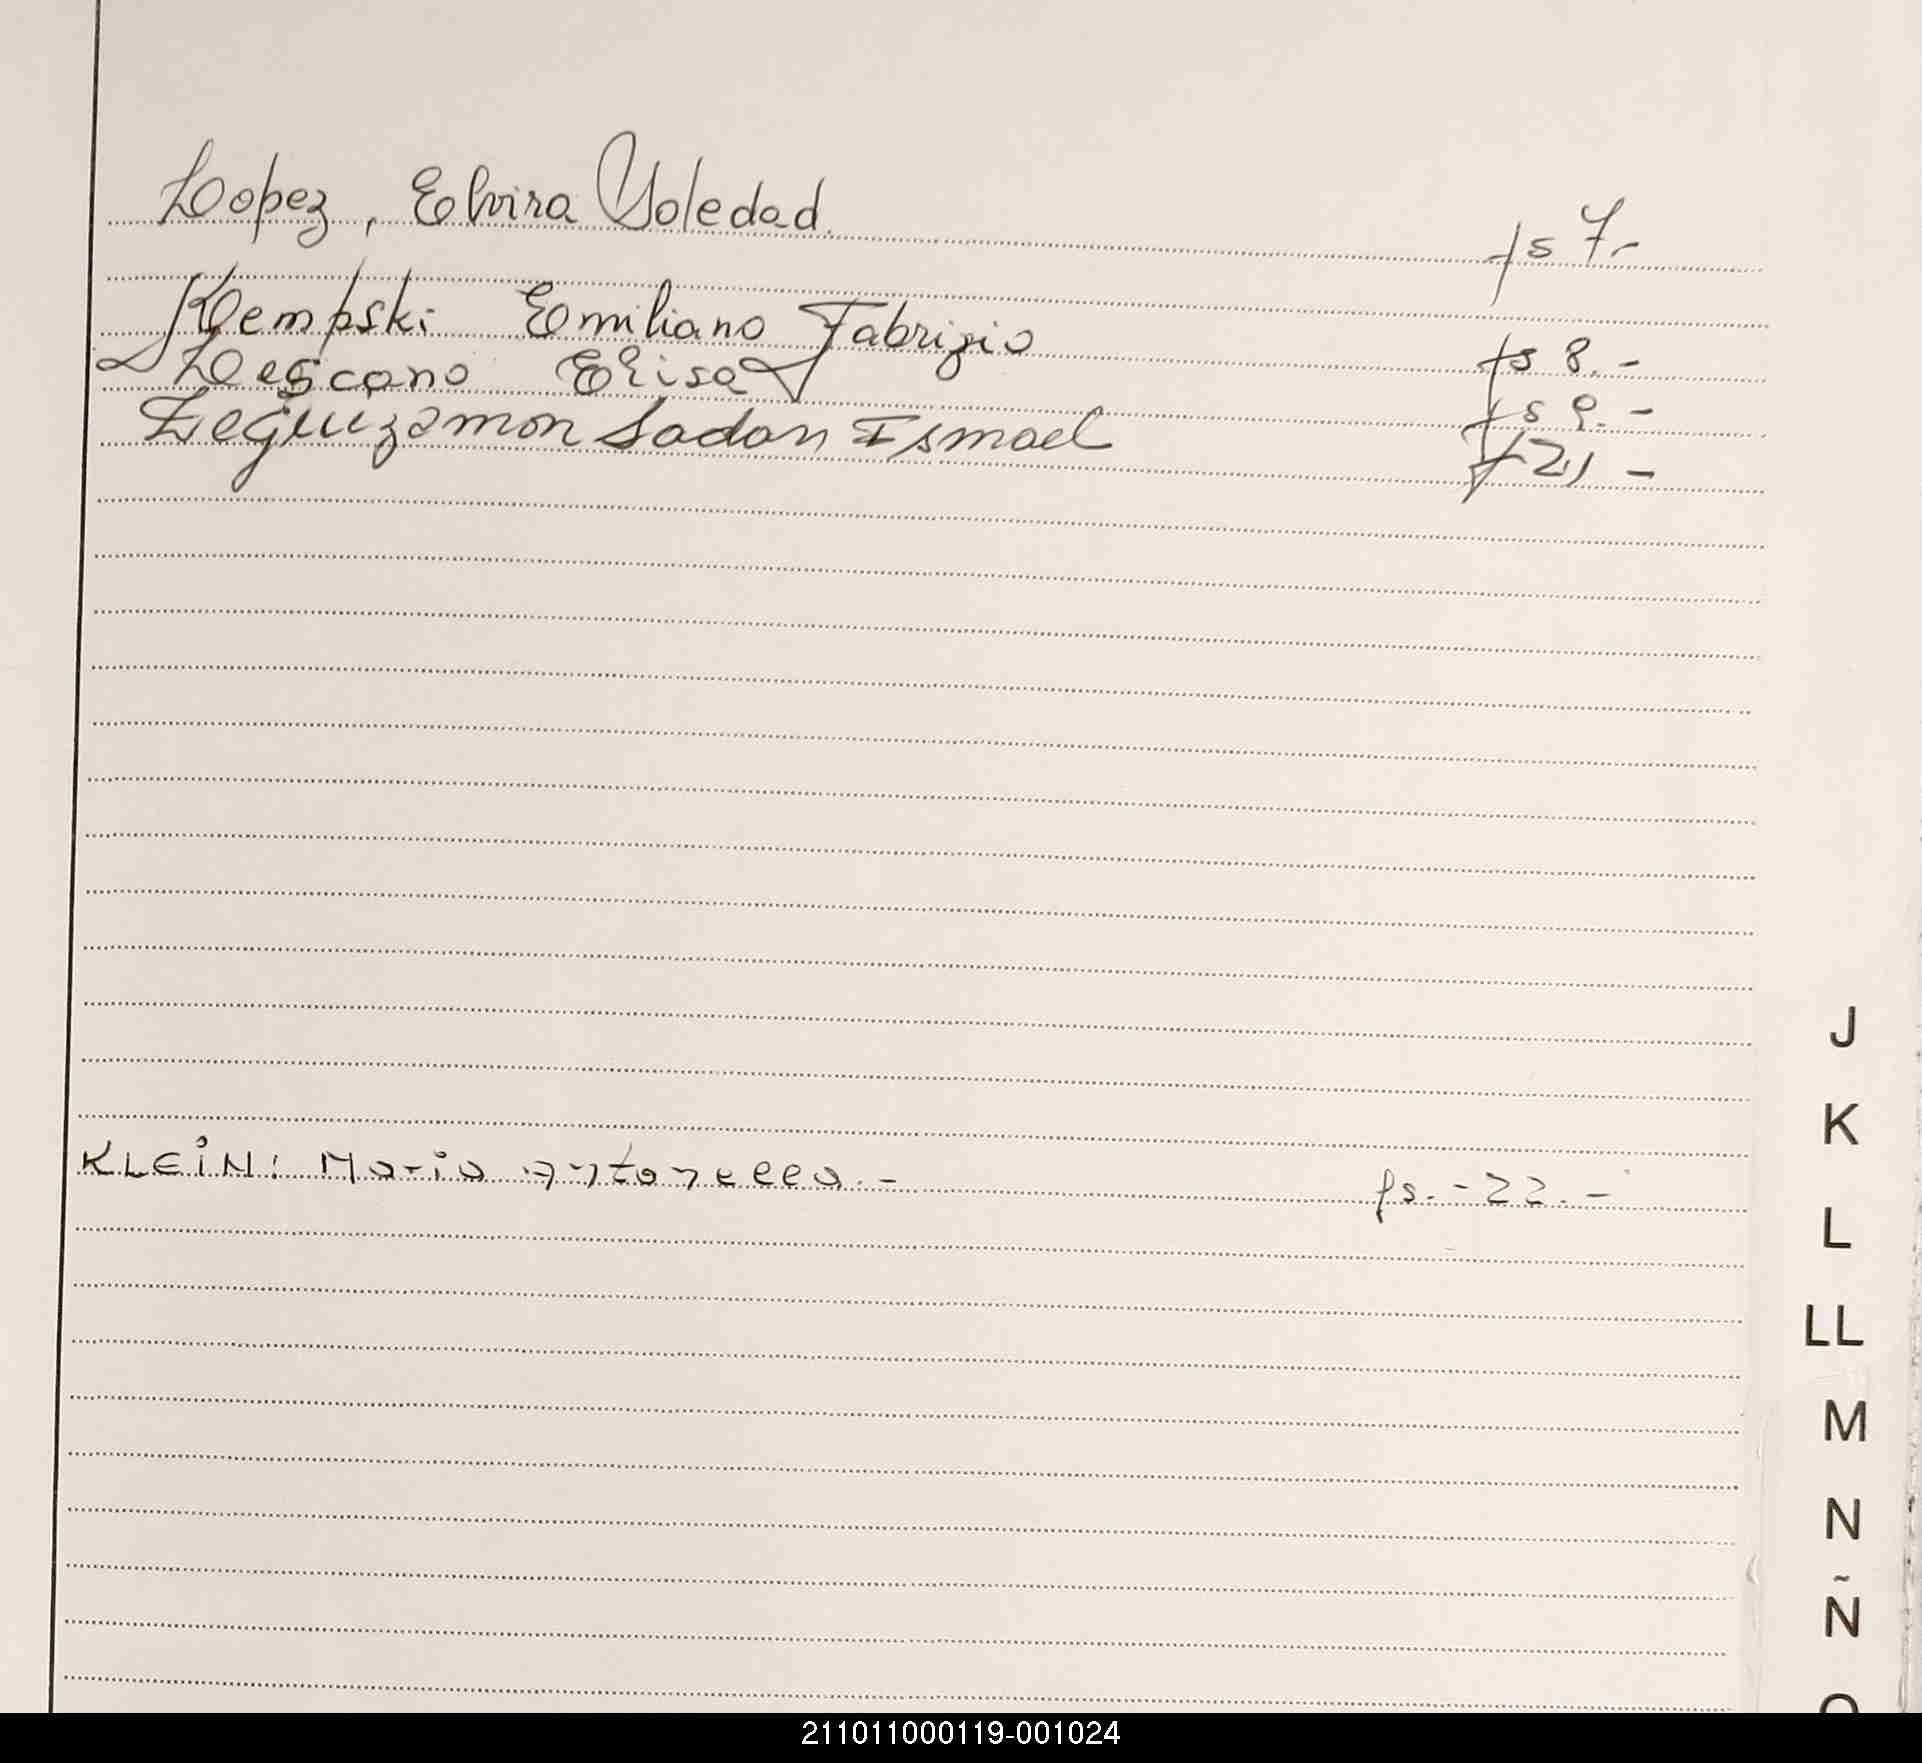 Lopez, Elvira Soledad.
fs 7.-
Kempski Emiliano Fabrizio
fs 8.-
Lescano Elisa
fs 9.-
Leguizamon Sadan Ismael
f 21 -
J
K
KLEiN: Maria Antonella.-
fs.-22.-
L
LL
M
N
Ñ
O
211011000119-001024